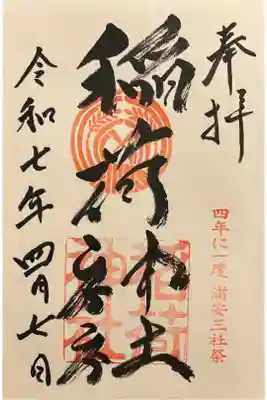 奉拝
四年に一度 浦安三社祭
稲荷
稲荷神社
令和七年四月七日